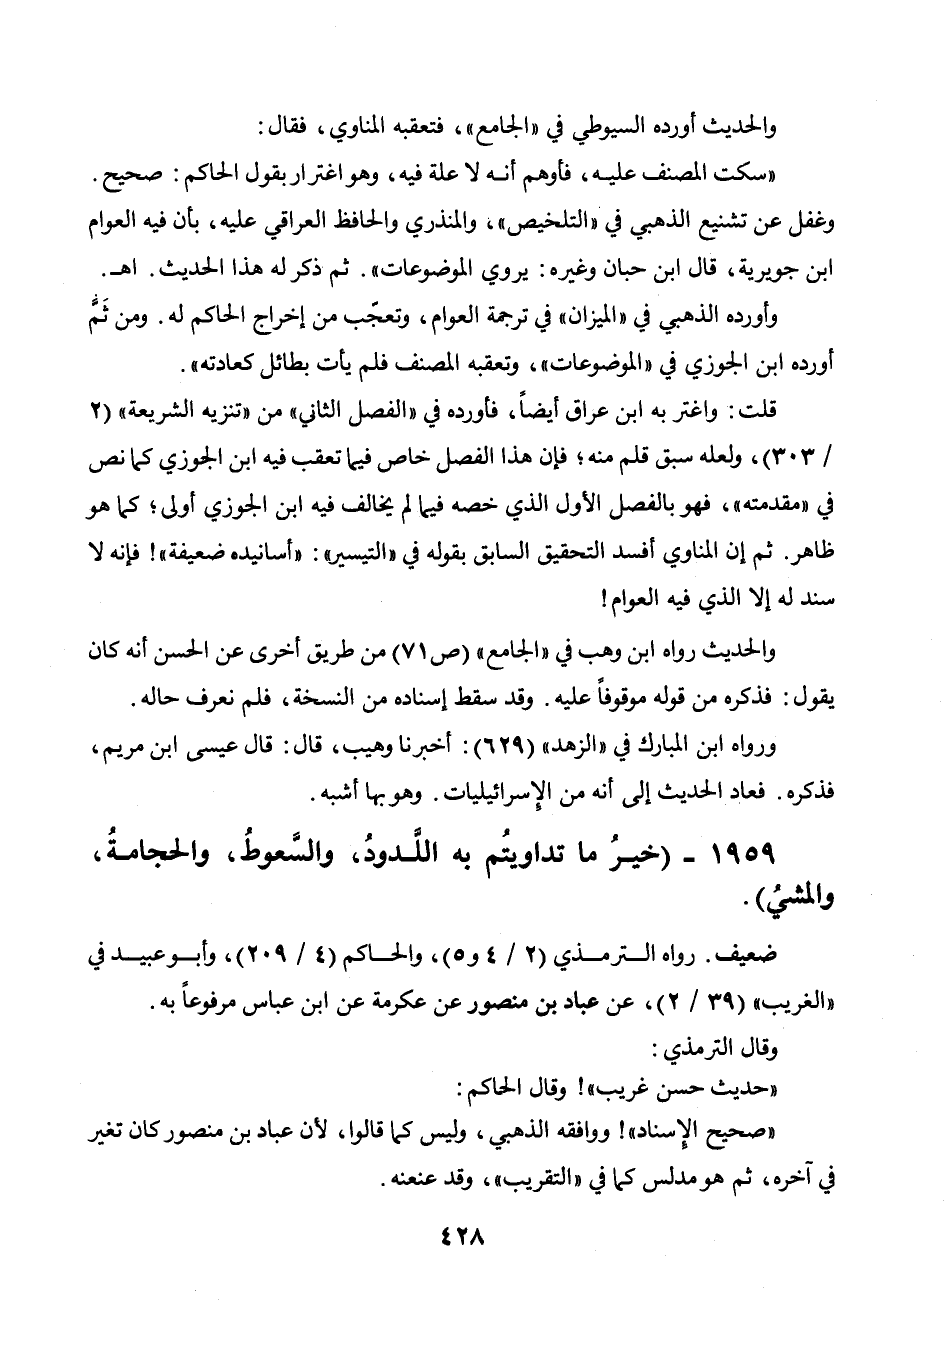 والحديث أورده السيوطي في «الجامع»، فتعقبه المناوي، فقال:
«سكت المصنف عليـه، فأوهم أنـه لا علة فيه، وهو اغترار بقول الحاكم: صحيح.
وغفل عن تشنيع الذهبي في «التلخيص»، والمنذري والحافظ العراقي عليه، بأن فيه العوام
ابن جويرية، قال ابن حبان وغيره: يروي الموضوعات». ثم ذكر له هذا الحديث. اهـ.
وأورده الذهبي في «الميزان» في ترجمة العوام، وتعجّب من إخراج الحاكم له. ومن ثَمَّ
أورده ابن الجوزي في «الموضوعات»، وتعقبه المصنف فلم يأت بطائل كعادته».
قلت: واغتر به ابن عراق أيضاً، فأورده في «الفصل الثاني» من «تنزيه الشريعة» (٢
/ ٣٠٣)، ولعله سبق قلم منه؛ فإن هذا الفصل خاص فيما تعقب فيه ابن الجوزي كما نص
في «مقدمته»، فهو بالفصل الأول الذي خصه فيما لم يخالف فيه ابن الجوزي أولى؛ كما هو
ظاهر. ثم إن المناوي أفسد التحقيق السابق بقوله في «التيسير»: «أسانيده ضعيفة»! فإنه لا
سند له إلا الذي فيه العوام!
والحديث رواه ابن وهب في «الجامع» (ص٧١) من طريق أخرى عن الحسن أنه كان
يقول: فذكره من قوله موقوفاً عليه. وقد سقط إسناده من النسخة، فلم نعرف حاله.
ورواه ابن المبارك في «الزهد» (٦٢٩): أخبرنا وهيب، قال: قال عيسى ابن مريم،
فذكره. فعاد الحديث إلى أنه من الإسرائيليات. وهو بها أشبه.
١٩٥٩ - (خيـرُ ما تداويتُم به اللَّـدودُ، والسَّعوطُ، والحجامـةُ،
والمشيُ).
ضعيف. رواه الـترمـذي (٢ / ٤ و٥)، والحـاكم (٤ / ٢٠٩)، وأبـو عبيـد في
«الغريب» (٣٩ / ٢)، عن عباد بن منصور عن عكرمة عن ابن عباس مرفوعاً به.
وقال الترمذي:
«حديث حسن غريب»! وقال الحاكم:
«صحيح الإسناد»! ووافقه الذهبي، وليس كما قالوا، لأن عباد بن منصور كان تغير
في آخره، ثم هو مدلس كما في «التقريب»، وقد عنعنه.
٤٢٨